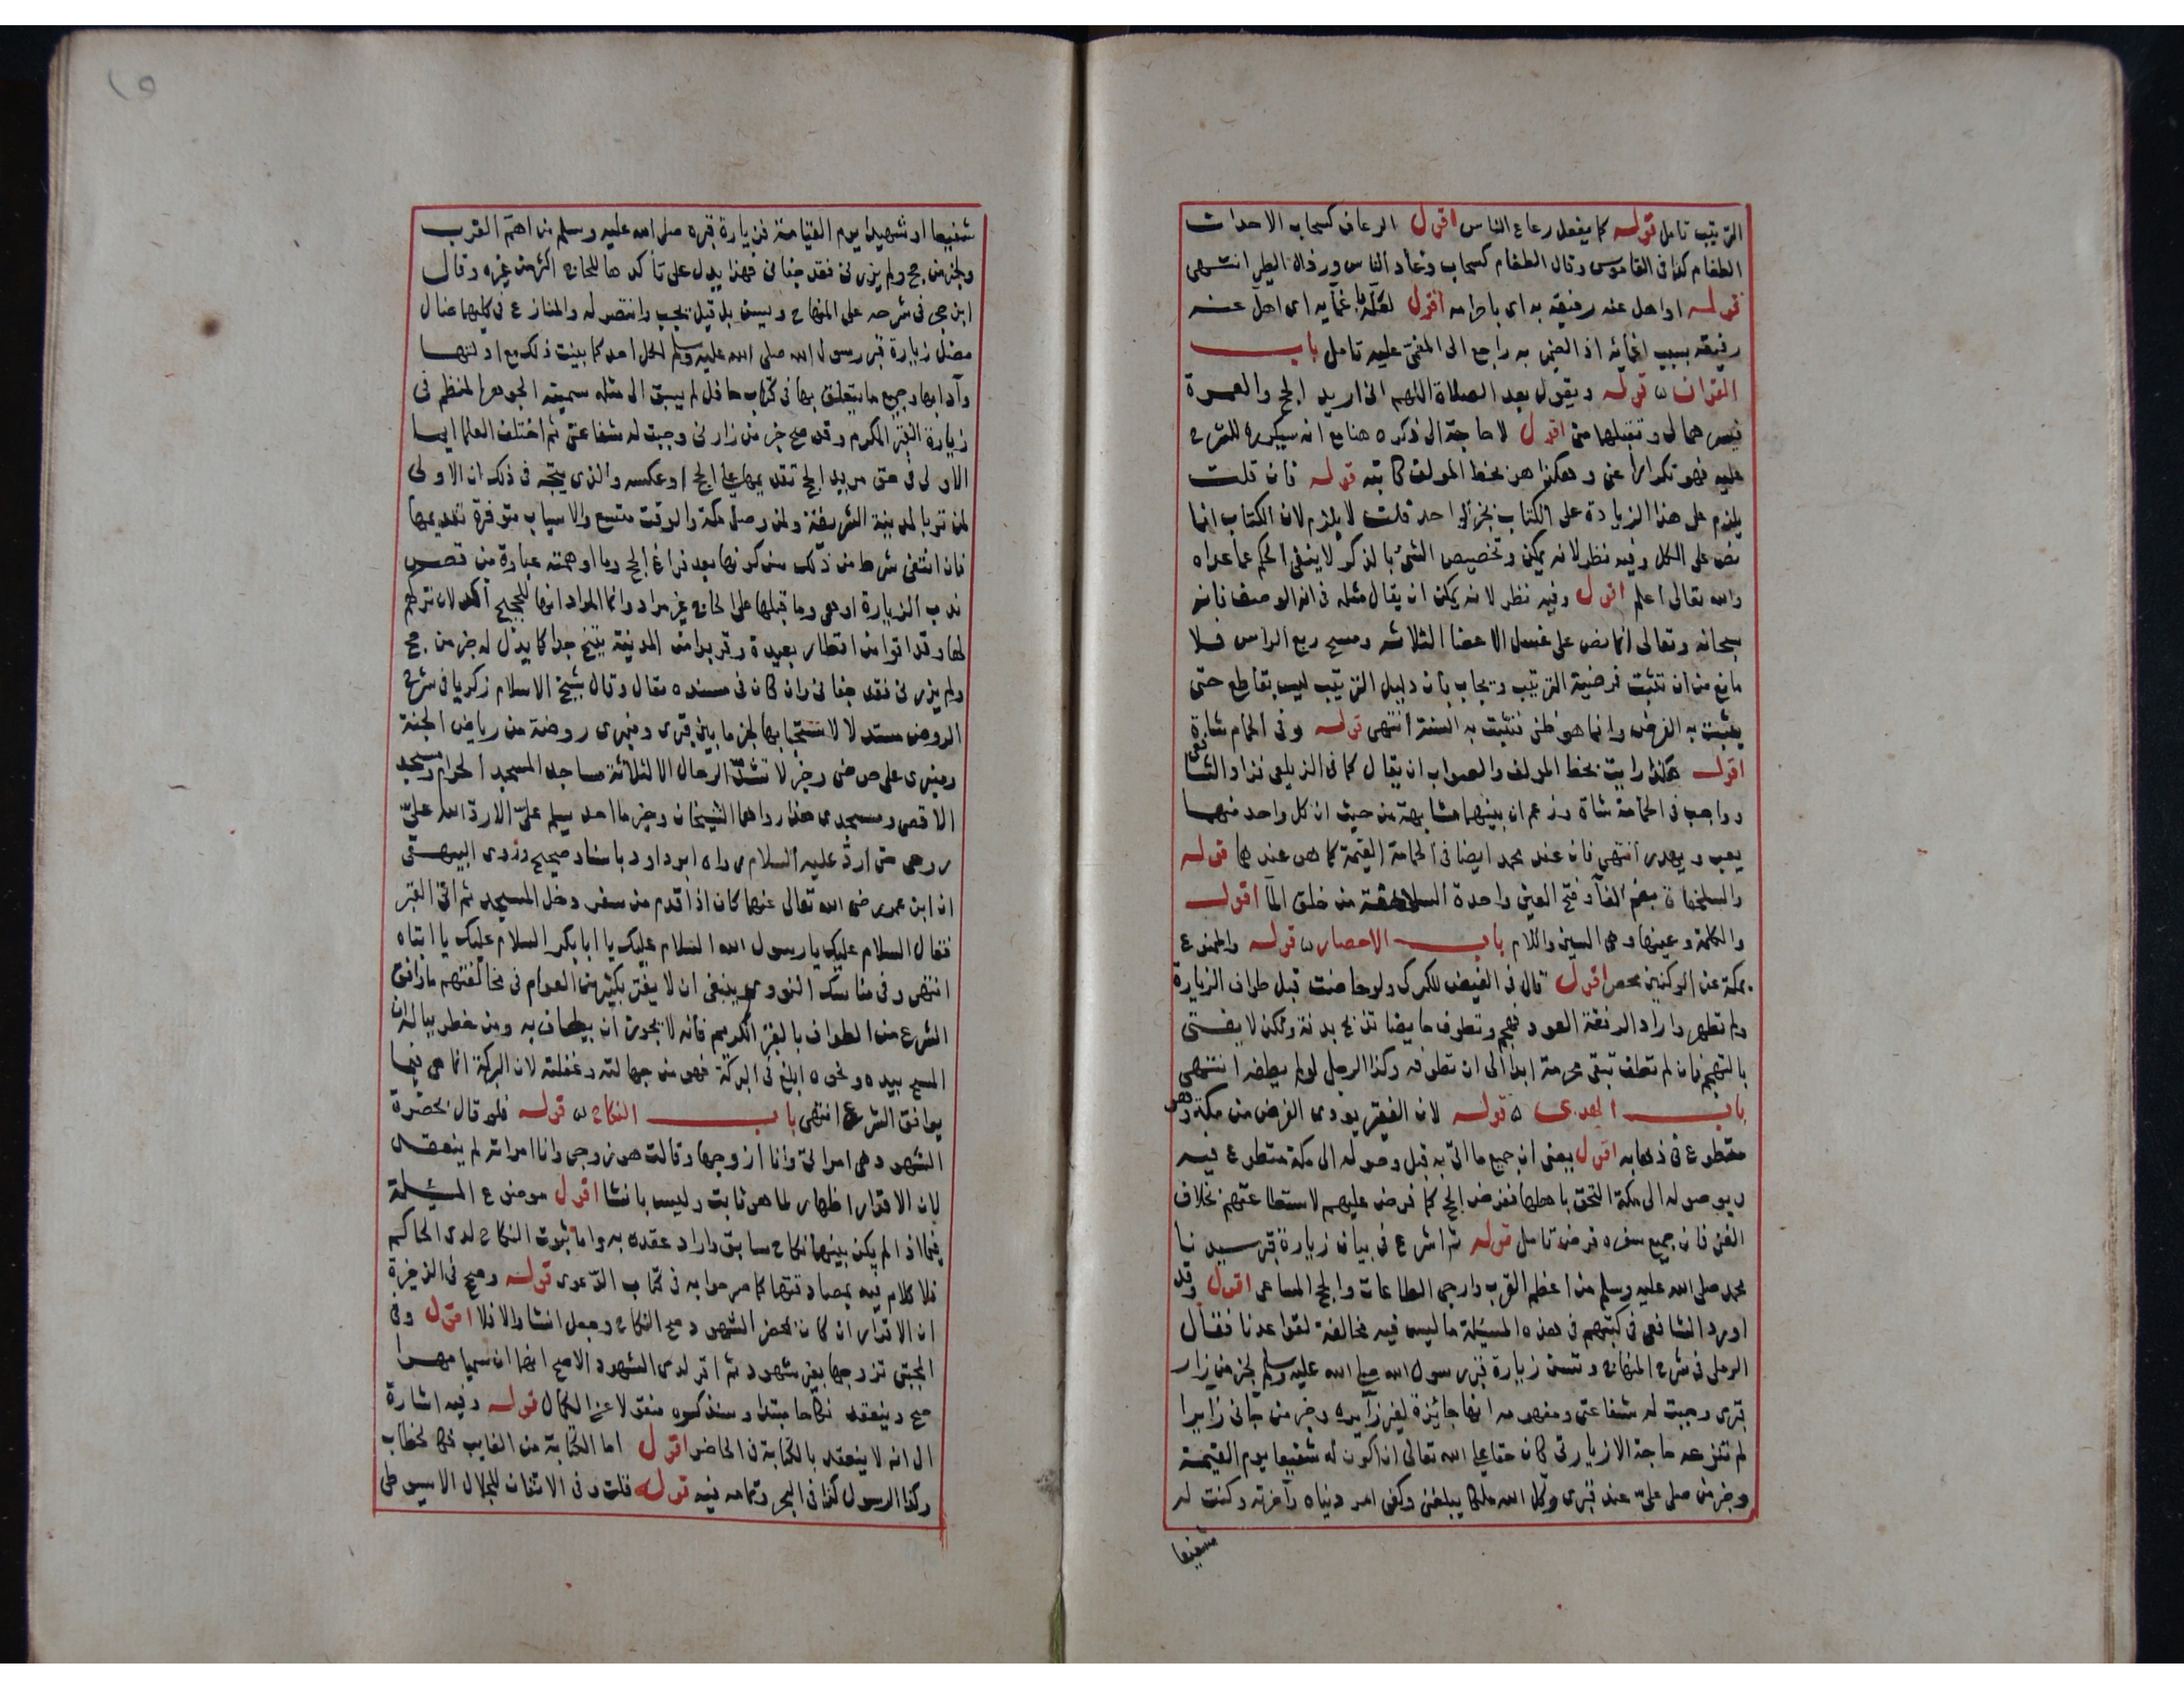 الترتيب تامل قوله كما يفعل رعاع الناس اقول الرعاف كسحاب الاحداث
الطغام كذا فى القاموس وقال الطغام كسحاب وغاد الناس ورذال الطير انتهى
قوله او اهل عنه رفيقه به اى باحرامه اقول لعله باغمايه اى اهل عنه
رفيقه بسبب اغمائه اذ الضمير به راجع الى المغمى عليه تامل باب
القران قوله ويقول بعد الصلاة اللهم انى اريد الحج والعمرة
فيسرهما لى وتقبلها منى اقول لا حاجة الى ذكره هنا مع انه سيكرره للشرح
عليه فهو تكرار وهكذا هو بخط المولف كاتبه قوله فان قلت
يلزم على هذا الزيادة على الكتاب بخبر الواحد قلت لا يلزم لان الكتاب انما
نص على الكل وفيه نظر لانه يمكن وتخصيص الشئ بالذكر لا ينفى الحكم عما عداه
والله تعالى اعلم اقول وفيه نظر لانه يمكن ان يقال مثله فى الوضوء فانه
سبحانه وتعالى انما نص على غسل الاعضا الثلاثة ومسح ربع الراس فلا
مانع من ان تثبت فرضية الترتيب ويجاب بان دليل الترتيب ليس بقاطع حتى
يثبت به الفرض وانما هو ظنى فتثبت به السنة انتهى قوله وفى الحمام شاة
اقول هكذا رايت بخط المولف والصواب ان يقال كما فى الزيلعى زاد الشافعى
وواجب فى الحمامة شاة وزعم ان بينهما مشابهة من حيث ان كل واحد منهما
يعب ويهدر انتهى فان عند محمد ايضا فى الحمامة القيمة كما هو عندها قوله
والسلحفاة بضم الفا وفتح العين واحدة السلاحف من خلق الما اقول
والكلمة وعينها وهى السين واللام باب الاحصار قوله والممنوع
بمكة عن الركنين محصر اقول قال فى الفيض للكركى ولو حاضت قبل طواف الزيارة
ولم تطهر واراد الرفقة العود تهجم وتطوف حايضا تذبح بدنة ولكن لا يفتى
بالتهجم فان لم تطف تبقى محرمة ابدا الى ان تطوف وكذا الرجل لو لم يطفه انتهى
باب الهدى قوله لان الفقير يودى الفرض من مكة وهو
متطوع فى ذهابه اقول يعنى ان جميع ما اتى به قبل وصوله الى مكة متطوع فيه
وبوصوله الى مكة التحق باهلها ففرض الحج كما فرض عليهم لاستطاعتهم بخلاف
الغنى فان جميع سفره فرض تامل قوله ثم اشرع فى بيان زيارة قبر سيدنا
محمد صلى الله عليه وسلم من اعظم القرب وارجى الطاعات وانجح المساعى اقول وقد
اورد الشافعى فى كتبهم فى هذه المسئلة ما ليس فيه مخالفة لقواعدنا فقال
الرملى فى شرح المنهاج وتسن زيارة قبر رسول الله صلى الله عليه وسلم لخبر من زار
قبرى وجبت له شفاعتى ومفهومه انها جائزة لغير زايره وخبر من جانى زايرا
لم تنزعه حاجة الا زيارتى كان حقا على الله تعالى ان اكون له شفيعا يوم القيمة
وخبر من صلى على عند قبرى وكل الله ملكا يبلغنى وكفى امر دنياه واخرته وكنت له
شفيعا
شفيعا او شهيدا يوم القيامة فزيارة قبره صلى الله عليه وسلم من اهم القرب
ولخبر من حج ولم يزرنى فقد جفانى فهذا يدل على تأكدها للحاج اكثر من غيره وقال
ابن حجر فى شرحه على المنهاج ويسن بل قيل يجب وانتصر له والمنازع فى طلبها ضال
مضل زيارة قبر رسول الله صلى الله عليه وسلم لكل احد كما بينت ذلك مع ادلتها
وآدابها وجميع ما يتعلق بها فى كتاب حافل لم يسبق الى مثله سميته الجوهر المنظم فى
زيارة القبر المكرم وقد صح خبر من زارنى وجبت له شفاعتى ثم اختلف العلما ايما
الاولى فى حق مريد الحج تقديمها على الحج او عكسه والذى يتجه فى ذلك ان الاولى
لمن قرب المدينة الشريفة ولمن وصل مكة والوقت متسع والاسباب متوفرة تقديمها
فان انتفى شرط من ذلك سن كونها بعد فراغ الحج وما اوهمته عبارة من قصر
ندب الزيارة اوهى وما قبلها على الحاج غير مراد وانما المراد انها للحجيج آكد لان تركهم
لها وقد اتوا من اقطار بعيدة وقربوا من المدينة قبيح جدا كما يدل له خبر من حج
ولم يزرنى فقد جفانى وان كان فى مسنده مقال وقال شيخ الاسلام زكريا فى شرح
الروض مستدلا لاستحبابها لخبر ما بين قبرى ومنبرى روضة من رياض الجنة
ومنبرى على حوضى وخبر لا تشد الرحال الا لثلاثة مساجد المسجد الحرام ومسجد
الاقصى ومسجدى هذا رواهما الشيخان وخبر ما احد يسلم على الا رد الله على
روحى حتى ارد عليه السلام رواه ابو داود باسناد صحيح وروى البيهقى
ان ابن عمر رضى الله تعالى عنهما كان اذا قدم من سفر دخل المسجد ثم اتى القبر
فقال السلام عليك يا رسول الله السلام عليك يا ابا بكر السلام عليك يا ابتاه
انتهى وفى مناسك النووى ينبغى ان لا يغتر بكثير من العوام فى مخالفتهم ما وافق
الشرع من الطواف بالقبر الكريم فانه لا يجوز ان يطاف به ومن خطر بباله ان
المسح بيده ونحوه ابلغ فى البركة فهو من جهالته وغفلته لان البركة انما هى فيما
يوافق الشرع انتهى باب النكاح قوله فلو قال بحضرة
الشهود هى امراتى وانا زوجها وقالت هو زوجى وانا امراته لم ينعقد
لان الاقرار اظهار لما هو ثابت وليس بانشا اقول موضوع المسئلة
فيما اذا لم يكن بينهما نكاح سابق واراد عقده به واما ثبوت النكاح لدى الحاكم
فلا كلام فيه بمصادقتها كما صرحوا به فى كتاب الدعوى قوله وصح فى الذخيرة
ان الاقرار ان كان بمحضر الشهود صح النكاح وجعل انشا والا فلا اقول وفى
المجتبى تزوجها بغير شهود ثم اقر لدى الشهود الاصح انهما ان سميا مهرا
صح وينعقد نكاحا مبتدا وسنذكره منقولا عن الكمال قوله وفيه اشارة
الى انه لا ينعقد بالكتابة فى الحاضر اقول اما الكتابة من الغايب فكالخطاب
وكذا الرسول كذا فى البحر وتمامه فيه قوله قلت وفى الاتقان للجلال الاسيوطى